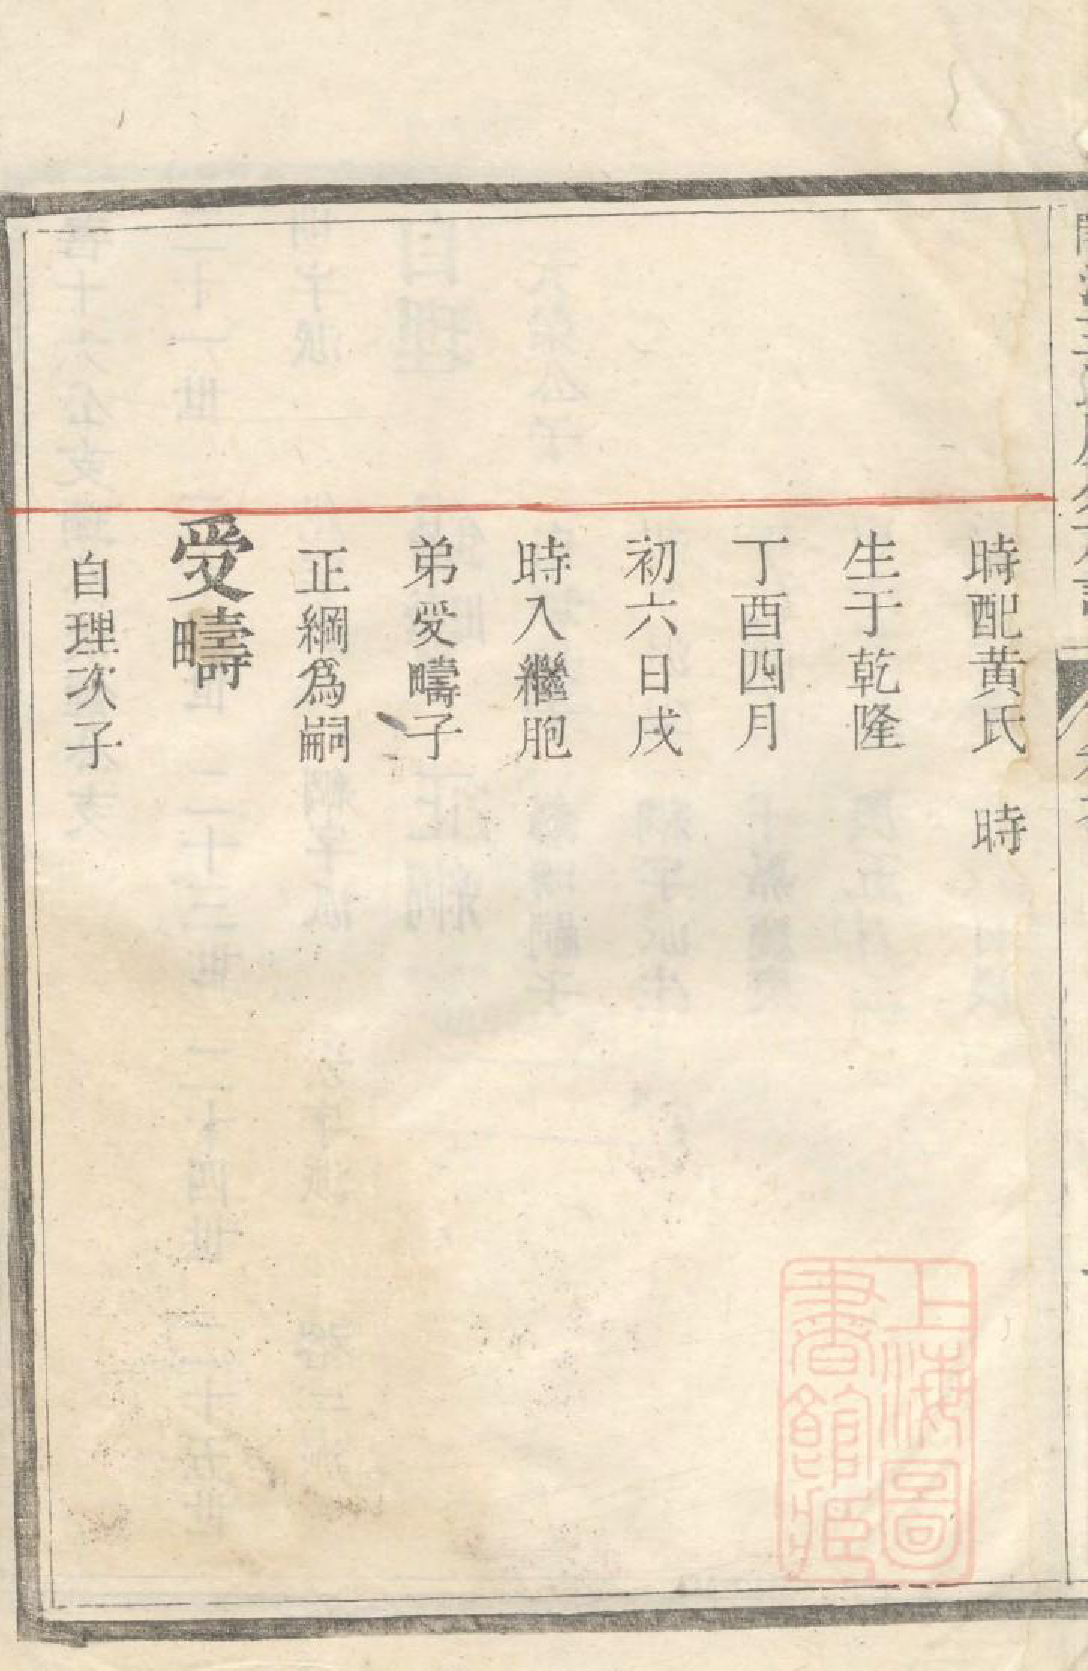 時配黄氏　時
生于乾隆
丁酉四月
初六日戌
時入繼胞
弟受疇子
正綱爲嗣
受疇
自理次子
上海圖
書館藏